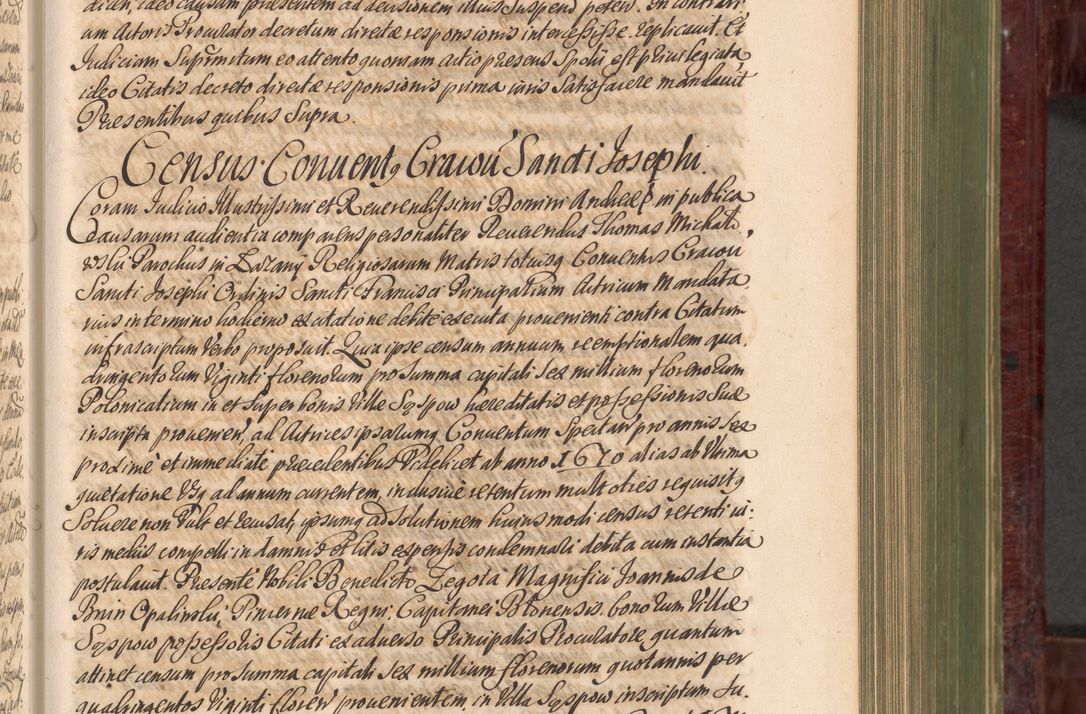 dicen, ideo causam praesentem ad decisionem illius suspendi petere. In contrari
um Actoris Procurator decretum directae responsionis intercessisse replicauit. Et
Iudicium Suprmstum eo attento quoniam actio praesens Spolii est priuilegiata
ideo Citatis decreto directae responsionis prima iuris satisfacere mandauit
Praesentibus quibus supra.
Census Conuentq Cracou Sancti Iosephi.
Coram Iudicio Illustrissimi et Reuerendissimi Domini Andreae in publica
Causarum audientia comparens personaliter Reuerendus Thomas Michalo
wski Parochus in Zazany Religiosarum Matris totiusq Conuentus Cracou
Sancti Iosephi Ordinis Sancti Francisci Principalium Actricum Mandata
rius in termino hodierno ex citatione debite executa proueniente contra Citatum
infrascriptum Verbo proposuit. Quia ipse censum annuum reemptionalem qua
dringentorum Viginti florenorum pro summa capitali sex millium florenorum
Polonicalium in et super bonis Villae Sąspow haereditatis et possessionis suae
inscripta prouenien, ad Actrices ipsarumq Conuentum Spectan pro annis sex
proxime et immediate praecedentibus Videlicet ab anno 1670 alias ab Vltima
quietatione Vsq ad annum currentem, inclusiue retentum multoties requisitq
Soluere non Vult et recusat, ipsumq ad solutionem huiusmodi census retenti iu-
ris mediis compelli in damnis et litis expensis condemnari debita cum instantia
postulauit. Praesente Nobili Benedicto Zegota Magnifici Ioannis de
Bnin Opalinski, Pincernae Regni, Capitanei Botonensis. bonorum Villae
Sąspow possessoris Citati ex aduerso Principalis Procuratore, quantum
attinet censum pro summa capitali sex millium florenorum quotannis per
quadringentos Viginti floren prouenientem, in Villa Sąspow inscriptum Su.